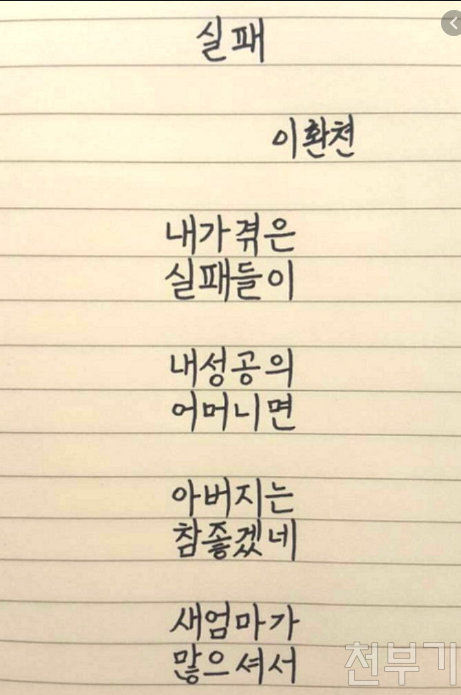 실패
이환천
내가겪은
실패들이
내성공의
어머니면
아버지는
참좋겠네
새엄마가
많으셔서
천부기